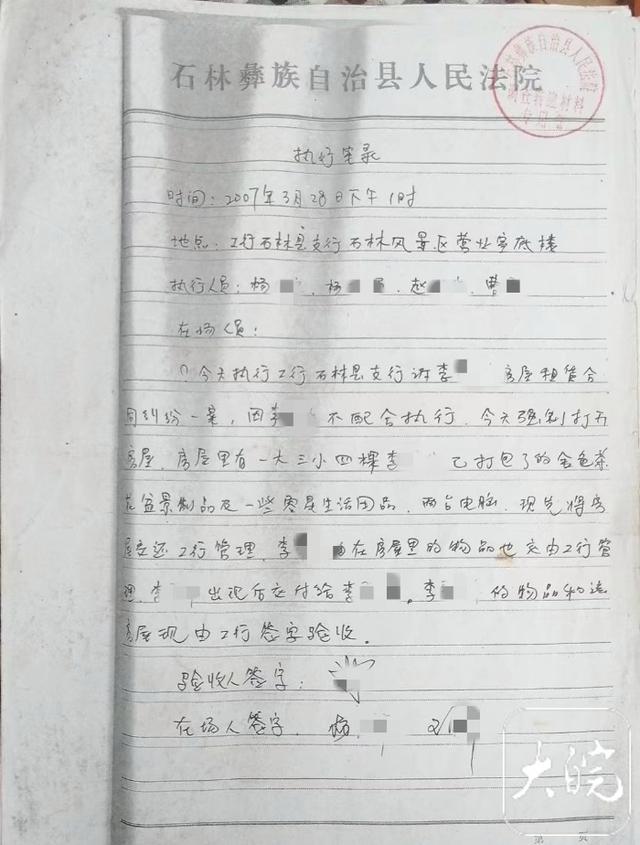 石林彝族自治县人民法院
执行笔录
时间:2007年3月28日下午1时
地点:工行石林县支行石林风景区营业室底楼
执行人员:杨 、杨 、赵 、曹
在场人员:
?今天执行工行石林县支行诉李 房屋租赁合
同纠纷一案,因李 不配合执行,今天强制打开
房屋,房屋里有一大三小四棵李 已打包了的金色茶
花盆景制品及一些零星生活用品,两台电脑,现先将房
屋交还工行管理,李 在房屋里的物品也交由工行管
理,李 出现后交付给李 。李 的物品和该
房屋现由工行签字验收。
验收人签字:
在场人签字: 杨
大皖
第 页